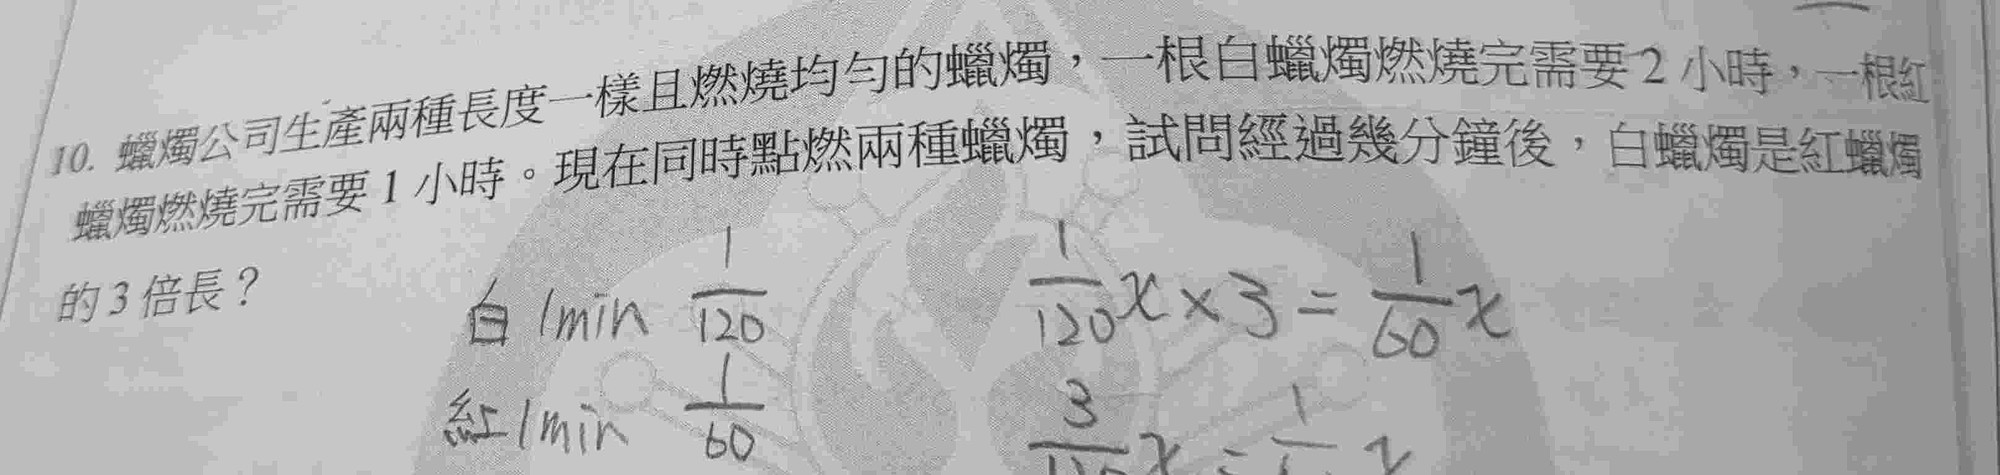 10. 蠟燭公司生產兩種長度一樣且燃燒均勻的蠟燭，一根白蠟燭燃燒完需要 2 小時，一根紅
蠟燭燃燒完需要 1 小時。現在同時點燃兩種蠟燭，試問經過幾分鐘後，白蠟燭是紅蠟燭
的 3 倍長？
白 1min 1/120
紅 1min 1/60
1/120 x × 3 = 1/60 x